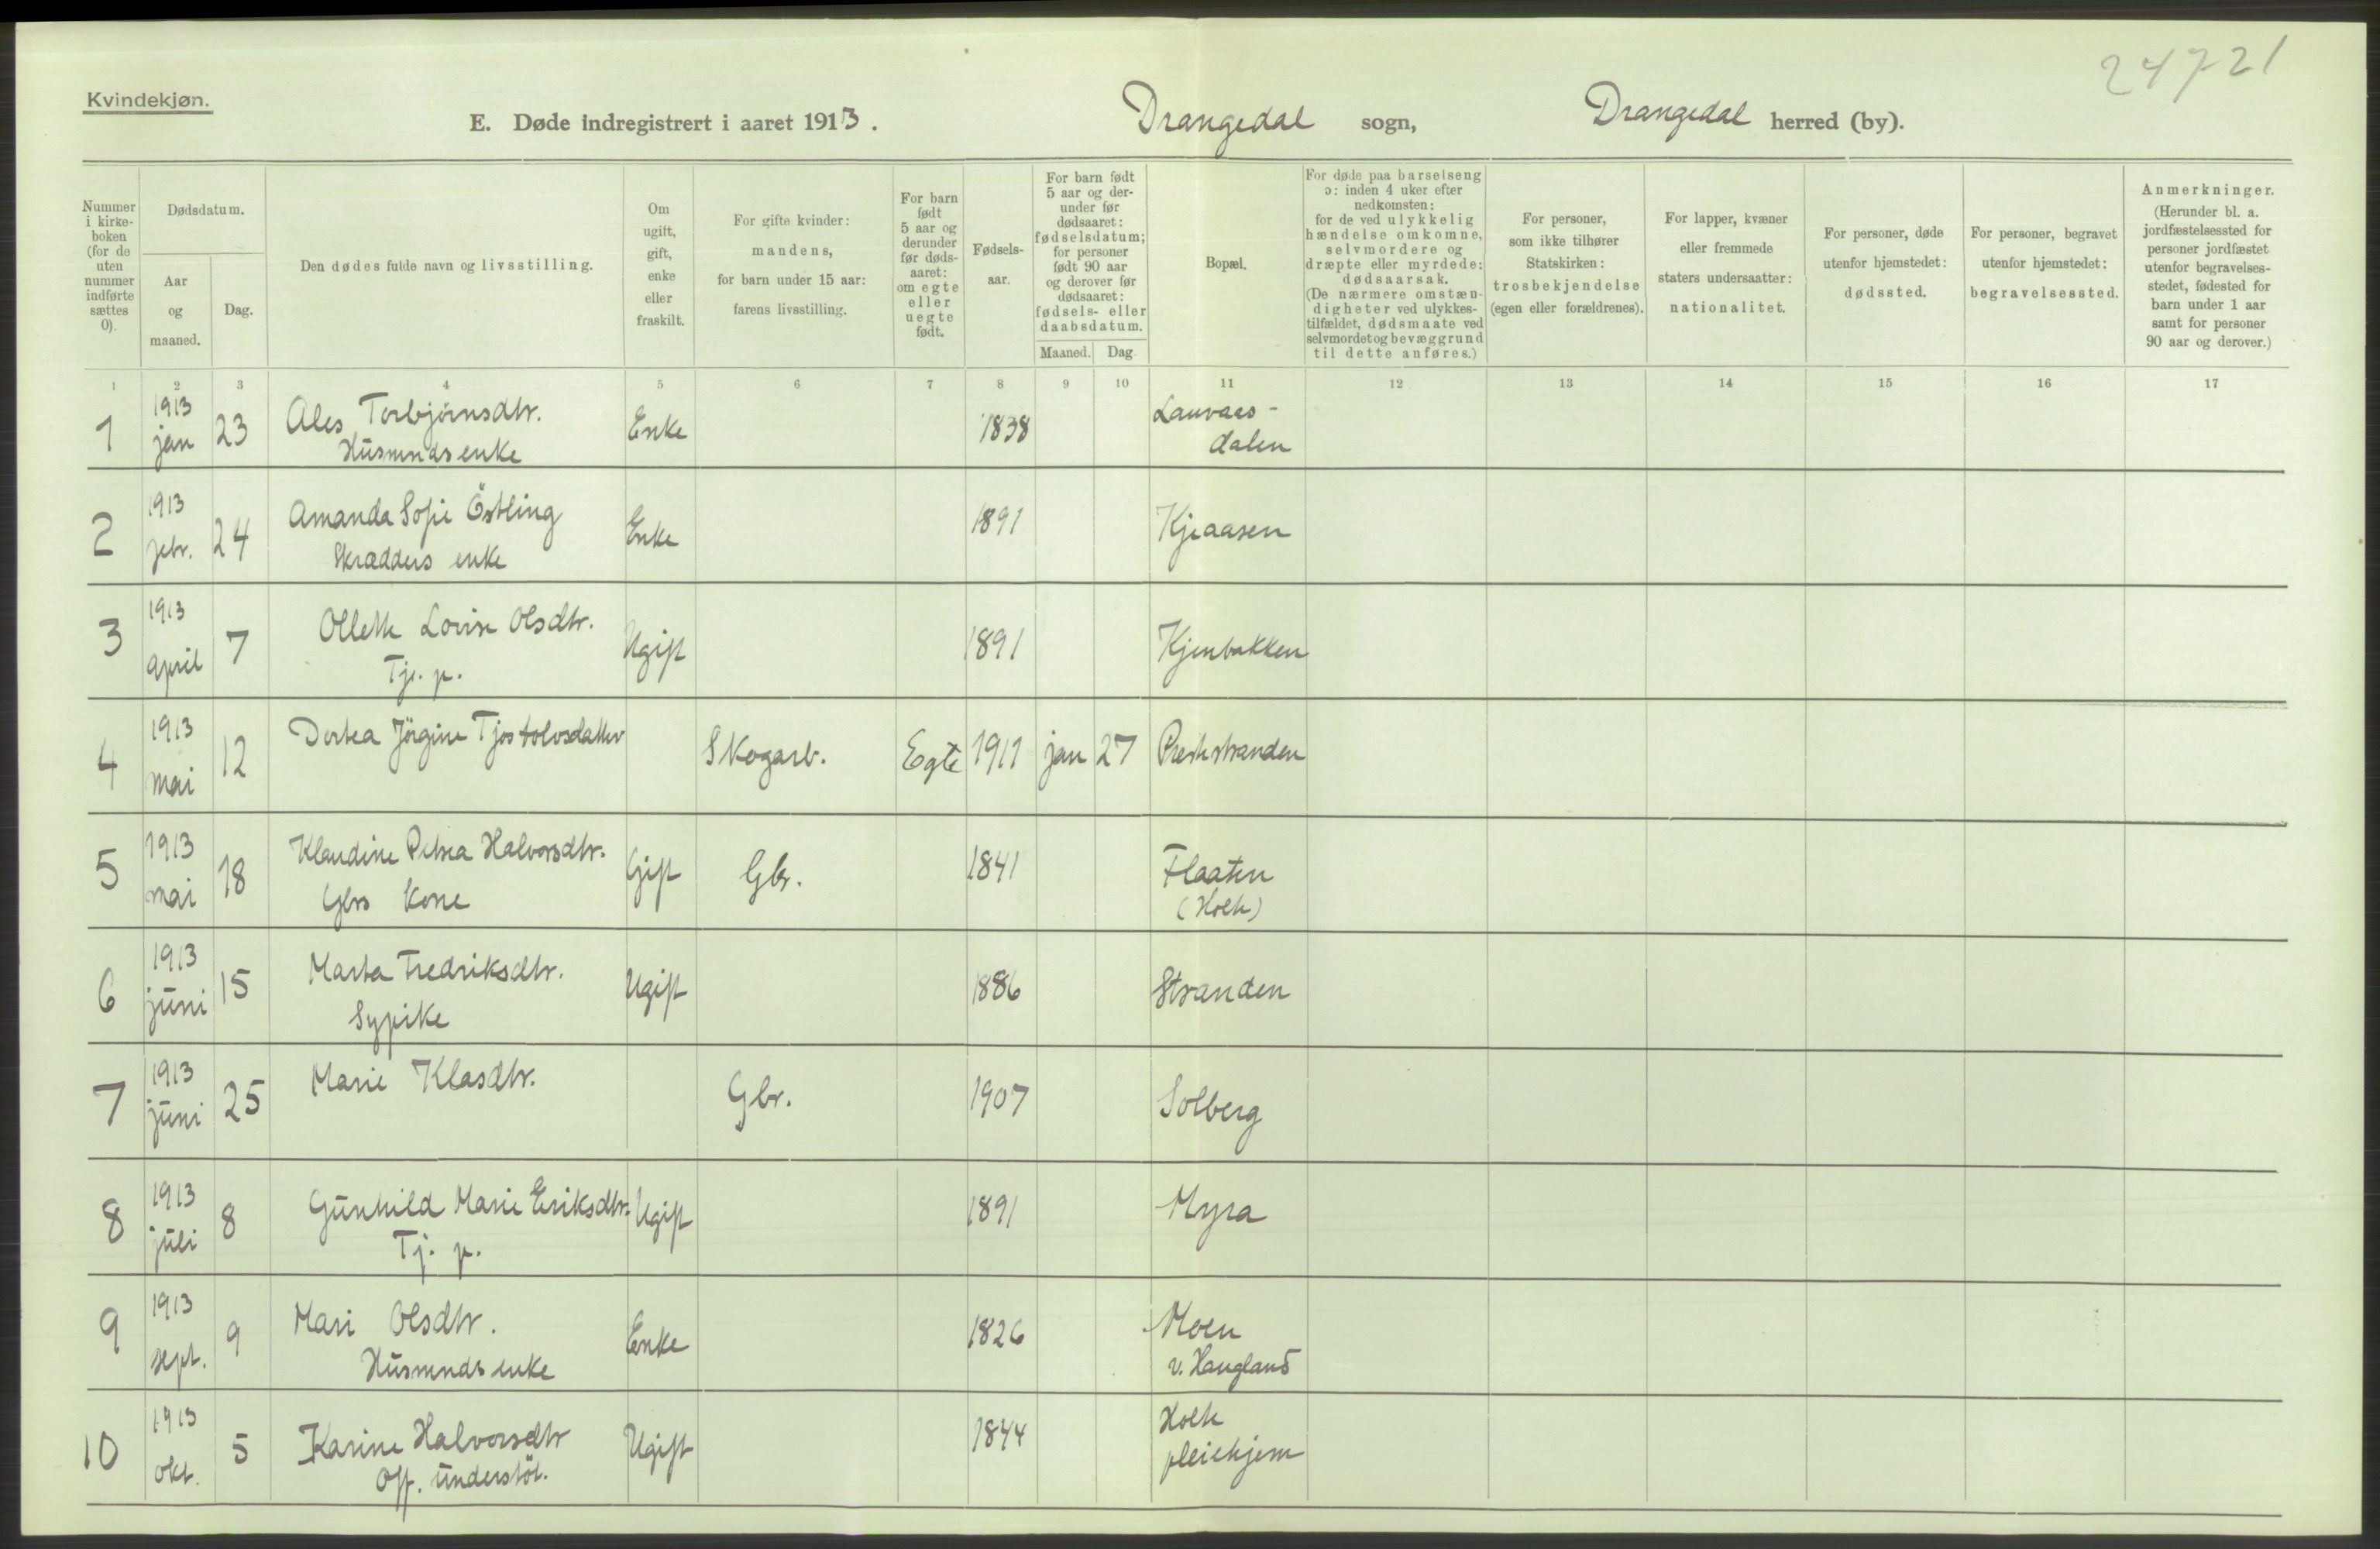 24721
Kvindekjøn.
E. Døde indregistrert i aaret 1913. Drangedal sogn, Drangedal herred (by).
Nummer i kirke-boken (for de uten nummer indførte sættes 0).
Dødsdatum.
Aar og maaned.
Dag.
Den dødes fulde navn og livsstilling.
Om ugift, gift, enke eller fraskilt.
For gifte kvinder: mandens, for barn under 15 aar: farens livsstilling.
For barn født 5 aar og derunder før døds-aaret: om egte eller uegte født.
Fødsels-aar.
For barn født 5 aar og der-under før dødsaaret: fødselsdatum; for personer født 90 aar og derover før dødsaaret: fødsels- eller daabsdatum.
Maaned. Dag
Bopæl.
For døde paa barselseng ɔ: inden 4 uker efter nedkomsten: for de ved ulykkelig hændelse omkomne, selvmordere og dræpte eller myrdede: dødsaarsak. (De nærmere omstæn-digheter ved ulykkes-tilfældet, dødsmaate ved selvmordet og bevæggrund til dette anføres.)
For personer, som ikke tilhører Statskirken: trosbekjendelse (egen eller forældrenes).
For lapper, kvæner eller fremmede staters undersaatter: nationalitet.
For personer, døde utenfor hjemstedet: dødssted.
For personer, begravet utenfor hjemstedet: begravelsessted.
Anmerkninger. (Herunder bl. a. jordfæstelsessted for personer jordfæstet utenfor begravelses-stedet, fødested for barn under 1 aar samt for personer 90 aar og derover.)
1 2 3 4 5 6 7 8 9 10 11 12 13 14 15 16 17
1 1913 jan 23 Ales Torbjörnsdtr. Husmndsenke Enke 1838 Lauvaas-dalen
2 1913 febr. 24 Amanda Sofie Östling Skrædders enke Enke 1891 Kjeaasen
3 1913 april 7 Ollette Lovise Olsdtr. Tj. p. Ugift 1891 Kjenbakken
4 1913 mai 12 Dortea Jörgine Tjostolvsdatter Skogarb. Egte 1911 jan 27 Prestestranden
5 1913 mai 18 Klaudine Petrea Halvorsdtr. Gbrs kone Gift Gbr. 1841 Flaaten (Holte)
6 1913 juni 15 Marta Fredriksdtr. Sypike Ugift 1886 Stranden
7 1913 juni 25 Marie Klasdtr. Gbr. 1907 Solberg
8 1913 juli 8 Gunhild Marie Eriksdtr. Tj. p. Ugift 1891 Myra
9 1913 sept. 9 Mari Olsdtr. Husmndsenke Enke 1826 Moen v. Haugland
10 1913 okt. 5 Karine Halvorsdtr Off. understöt. Ugift 1844 Holte pleiehjem